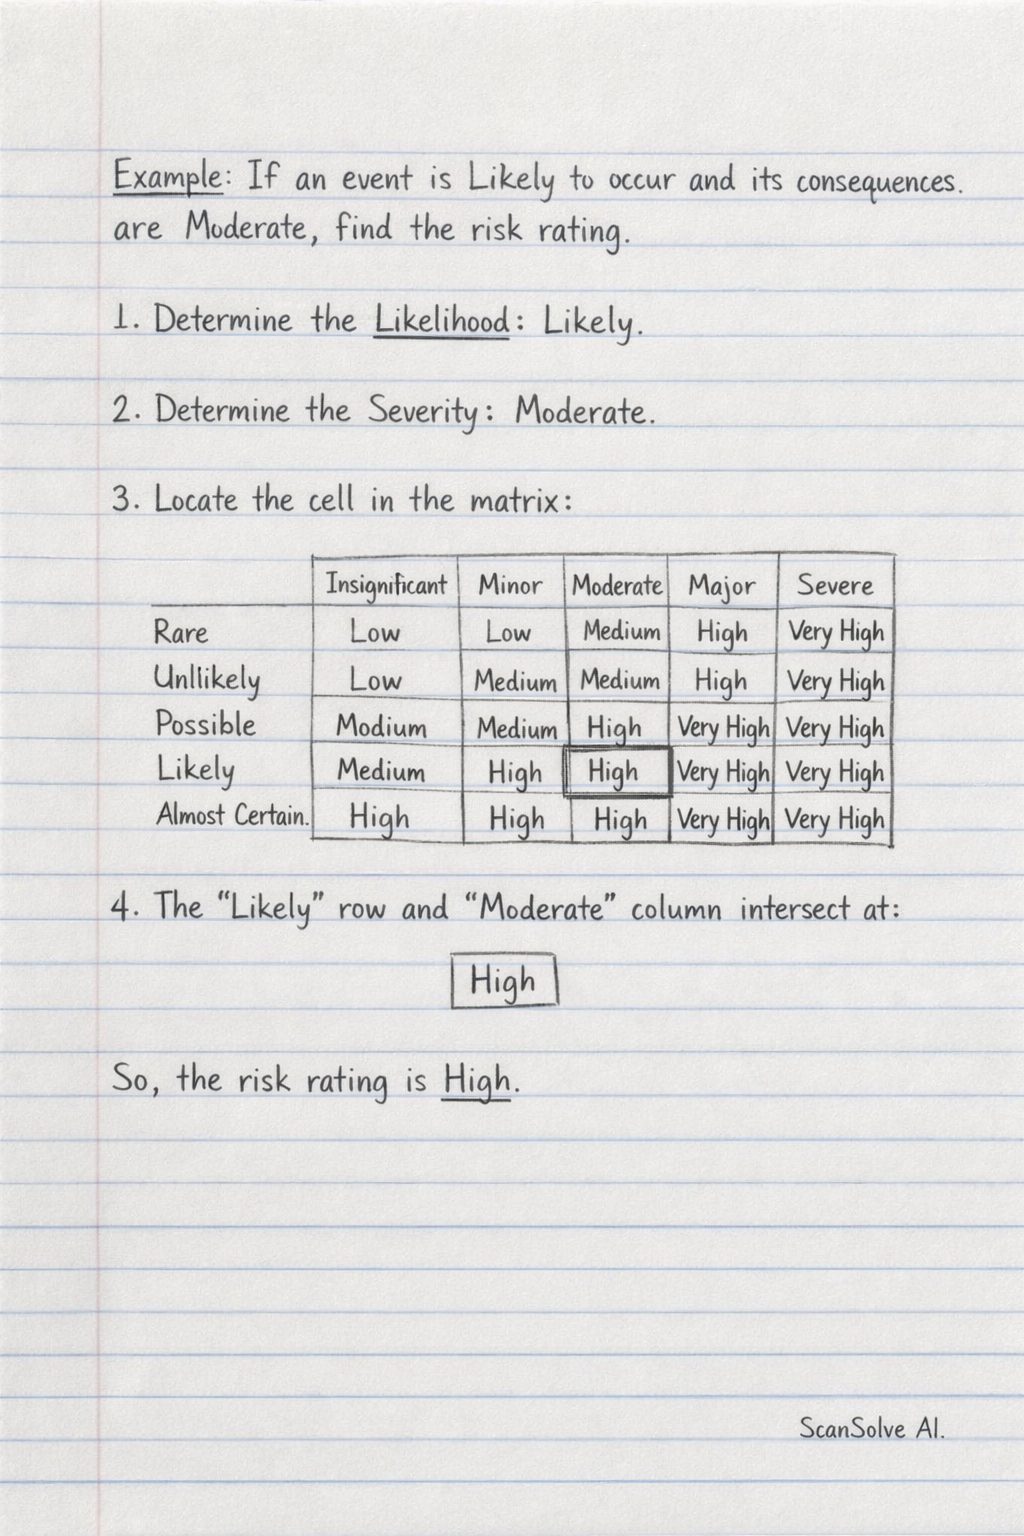 Example: If an event is Likely to occur and its consequences.
are Moderate, find the risk rating.
1. Determine the Likelihood: Likely.
2. Determine the Severity: Moderate.
3. Locate the cell in the matrix:
Insignificant Minor Moderate Major Severe
Rare Low Low Medium High Very High
Unllikely Low Medium Medium High Very High
Possible Modium Medium High Very High Very High
Likely Medium High High Very High Very High
Almost Certain. High High High Very High Very High
4. The “Likely” row and “Moderate” column intersect at:
High
So, the risk rating is High.
ScanSolve AI.